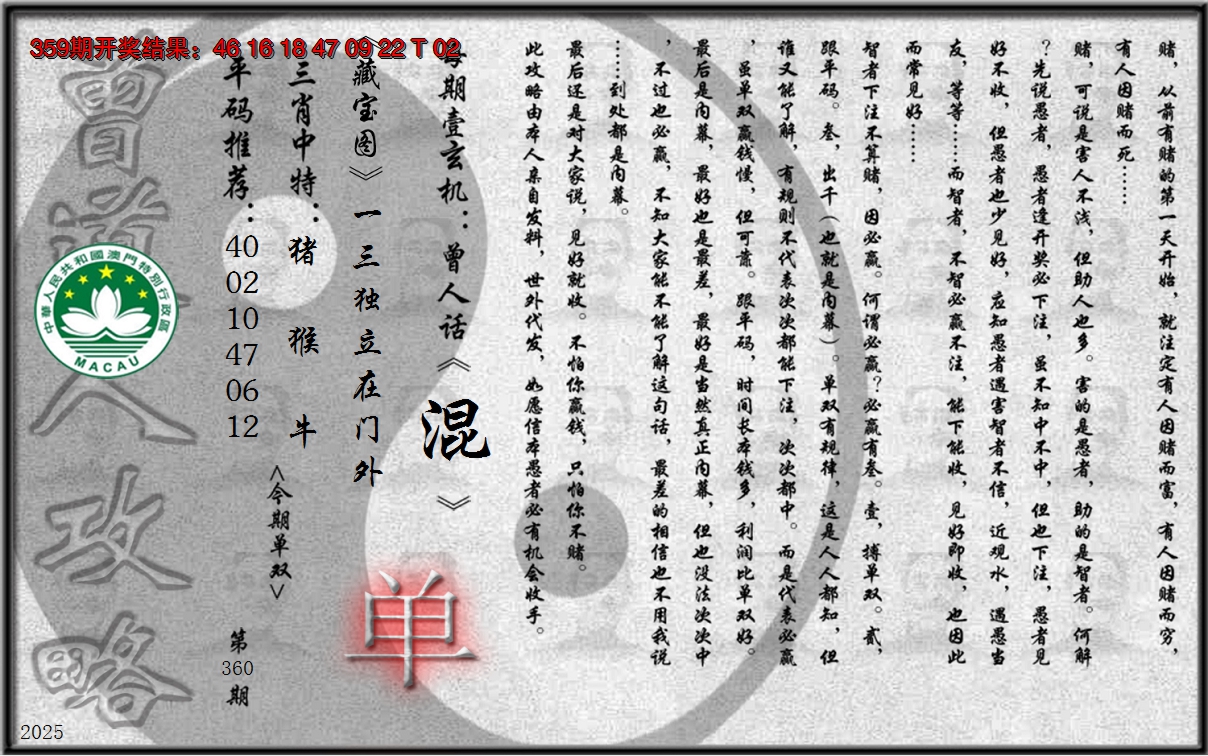 359期开奖结果：46 16 18 47 09 22 T 02
赌，从前有赌的第一天开始，就注定有人因赌而富，有人因赌而穷，
有人因赌而死……
赌，可说是害人不浅，但助人也多。害的是愚者，助的是智者。何解
？先说愚者，愚者逢开奖必下注，虽不知中不中，但也下注，愚者见
好不收，但愚者也少见好，应知愚者遇害智者不信，近观水，遇愚当
友，等等……而智者，不智必赢不注，能下能收，见好即收，也因此
而常见好……
智者下注不算赌，因必赢。何谓必赢？必赢有叁。壹，搏单双。贰，
跟平码。叁，出千（也就是内幕）。单双有规律，这是人人都知，但
谁又能了解，有规则不代表次次都能下注，次次都中。而是代表必赢
，虽单双赢钱慢，但可靠。跟平码，时间长本钱多，利润比单双好。
最后是内幕，最好也是最差，最好是当然真正内幕，但也没法次次中
，不过也必赢，不知大家能不能了解这句话，最差的相信也不用我说
……到处都是内幕。
最后还是对大家说，见好就收。不怕你赢钱，只怕你不赌。
此攻略由本人亲自发料，世外代发，如愿信本愚者必有机会收手。
每期壹玄机：曾人话《混》
《藏宝图》一三独立在门外
单
三肖中特：猪 猴 牛
<今期单双>
平码推荐：40 02 10 47 06 12
第360期
曾道人攻略
中華人民共和國澳門特別行政區
MACAU
2025